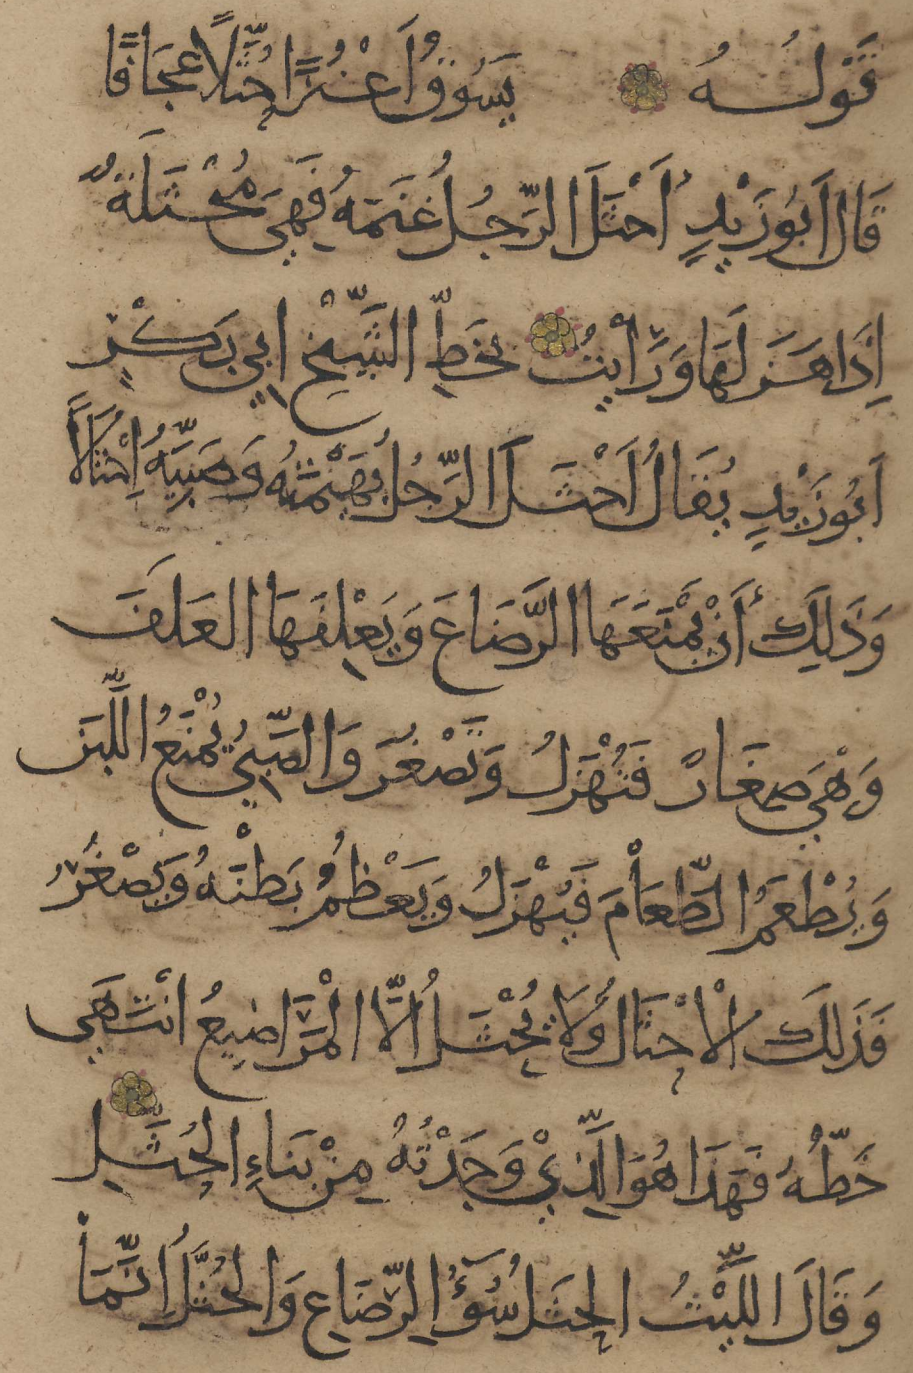 قَوْلُهُ يَسُوقُ اَعْنُزًا حُثَّلًا عِجَافًا
قَالَ اَبُو زَيْدٍ أَحْثَلَ الرَّجُلُ غَنَمَهُ فَهِيَ مُحْثَلَةٌ
اِذَا هَزَلَهَا وَرَأَيْتُ بِخَطِّ الشَّيْخِ ابِي بَكْرٍ
اَبُو زَيْدٍ يُقَالُ اَحْثَلَ الرَّجُلُ بُهْمَتَهُ وَصَبِيَّهُ اِحْثَالًا
وَذَلِكَ أَنْ يَمْنَعَهَا الرَّضَاعَ وَيَعْلِفَهَا العَلَفَ
وَهْيَ صِغَارٌ فَتُهْزَلُ وَتَصْغُرَ وَالصَّبِيُّ يُمْنَعُ اللَّبَنَ
وَيُطْعَمُ الطَّعَامَ فَيُهْزَلُ وَيَعْظُمُ بَطْنُهُ وَيَصْغُرُ
فَذَلِكَ الْاحْثَالُ وَلَا يُحْثَلُ الَّا الْمَرَاضِيعُ انْتَهَى
خَطُّهُ فَهَذَا هُوَ الَّذِيْ وَجَدْتُهُ مِنْ بَنَاءِ الحُثَّلِ
وَقَالَ اللَّيْثُ الحَثَلُ سُوْءُ الرَّضَاعِ وَالحُثَّلُ اِنَّمَا